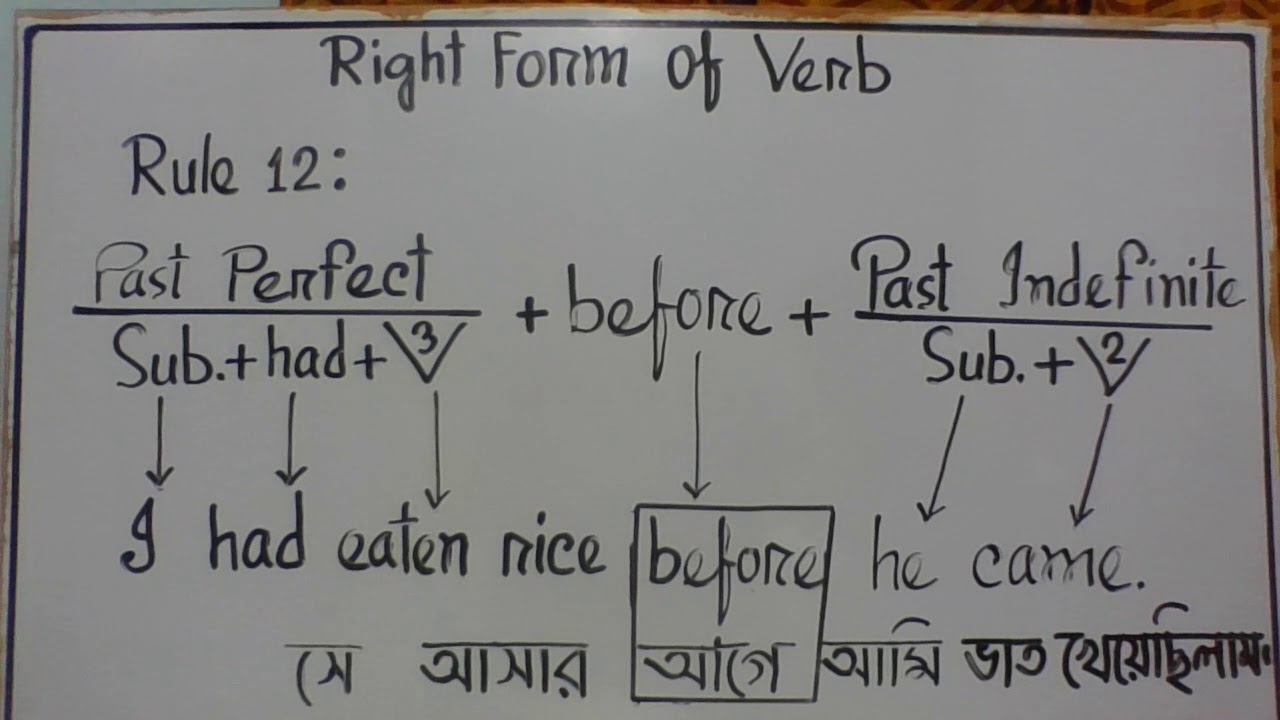 Right Form of Verb
Rule 12:
Past Perfect + before + Past Indefinite
Sub. + had + V3 Sub. + V2
I had eaten rice before he came.
সে আসার আগে আমি ভাত খেয়েছিলাম।